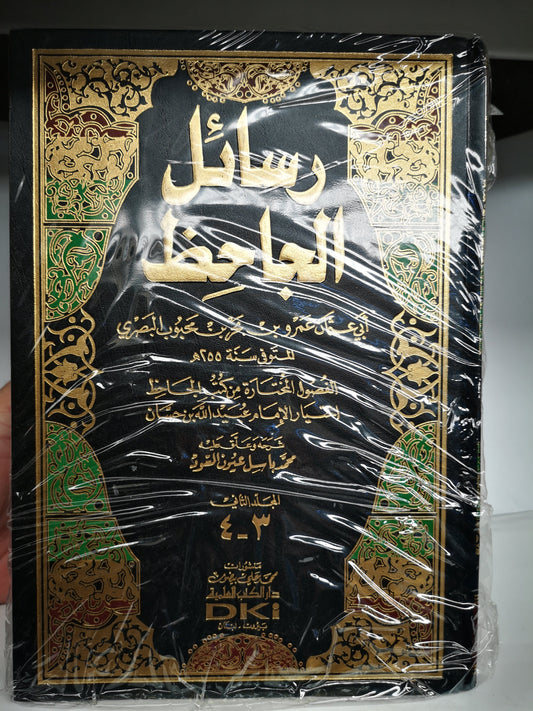 رسائل
الجاحظ
أبي عثمان عمرو بن بحر بن محبوب البصري
المتوفى سنة ٢٥٥هـ
الفصول المختارة من كتب الجاحظ
اختيار الإمام عبيد الله بن حسان
شرحه وعلق عليه
محمد باسل عيون السود
المجلد الثاني
٣-٤
منشورات
محمد علي بيضون
دار الكتب العلمية
DKi
بيروت - لبنان